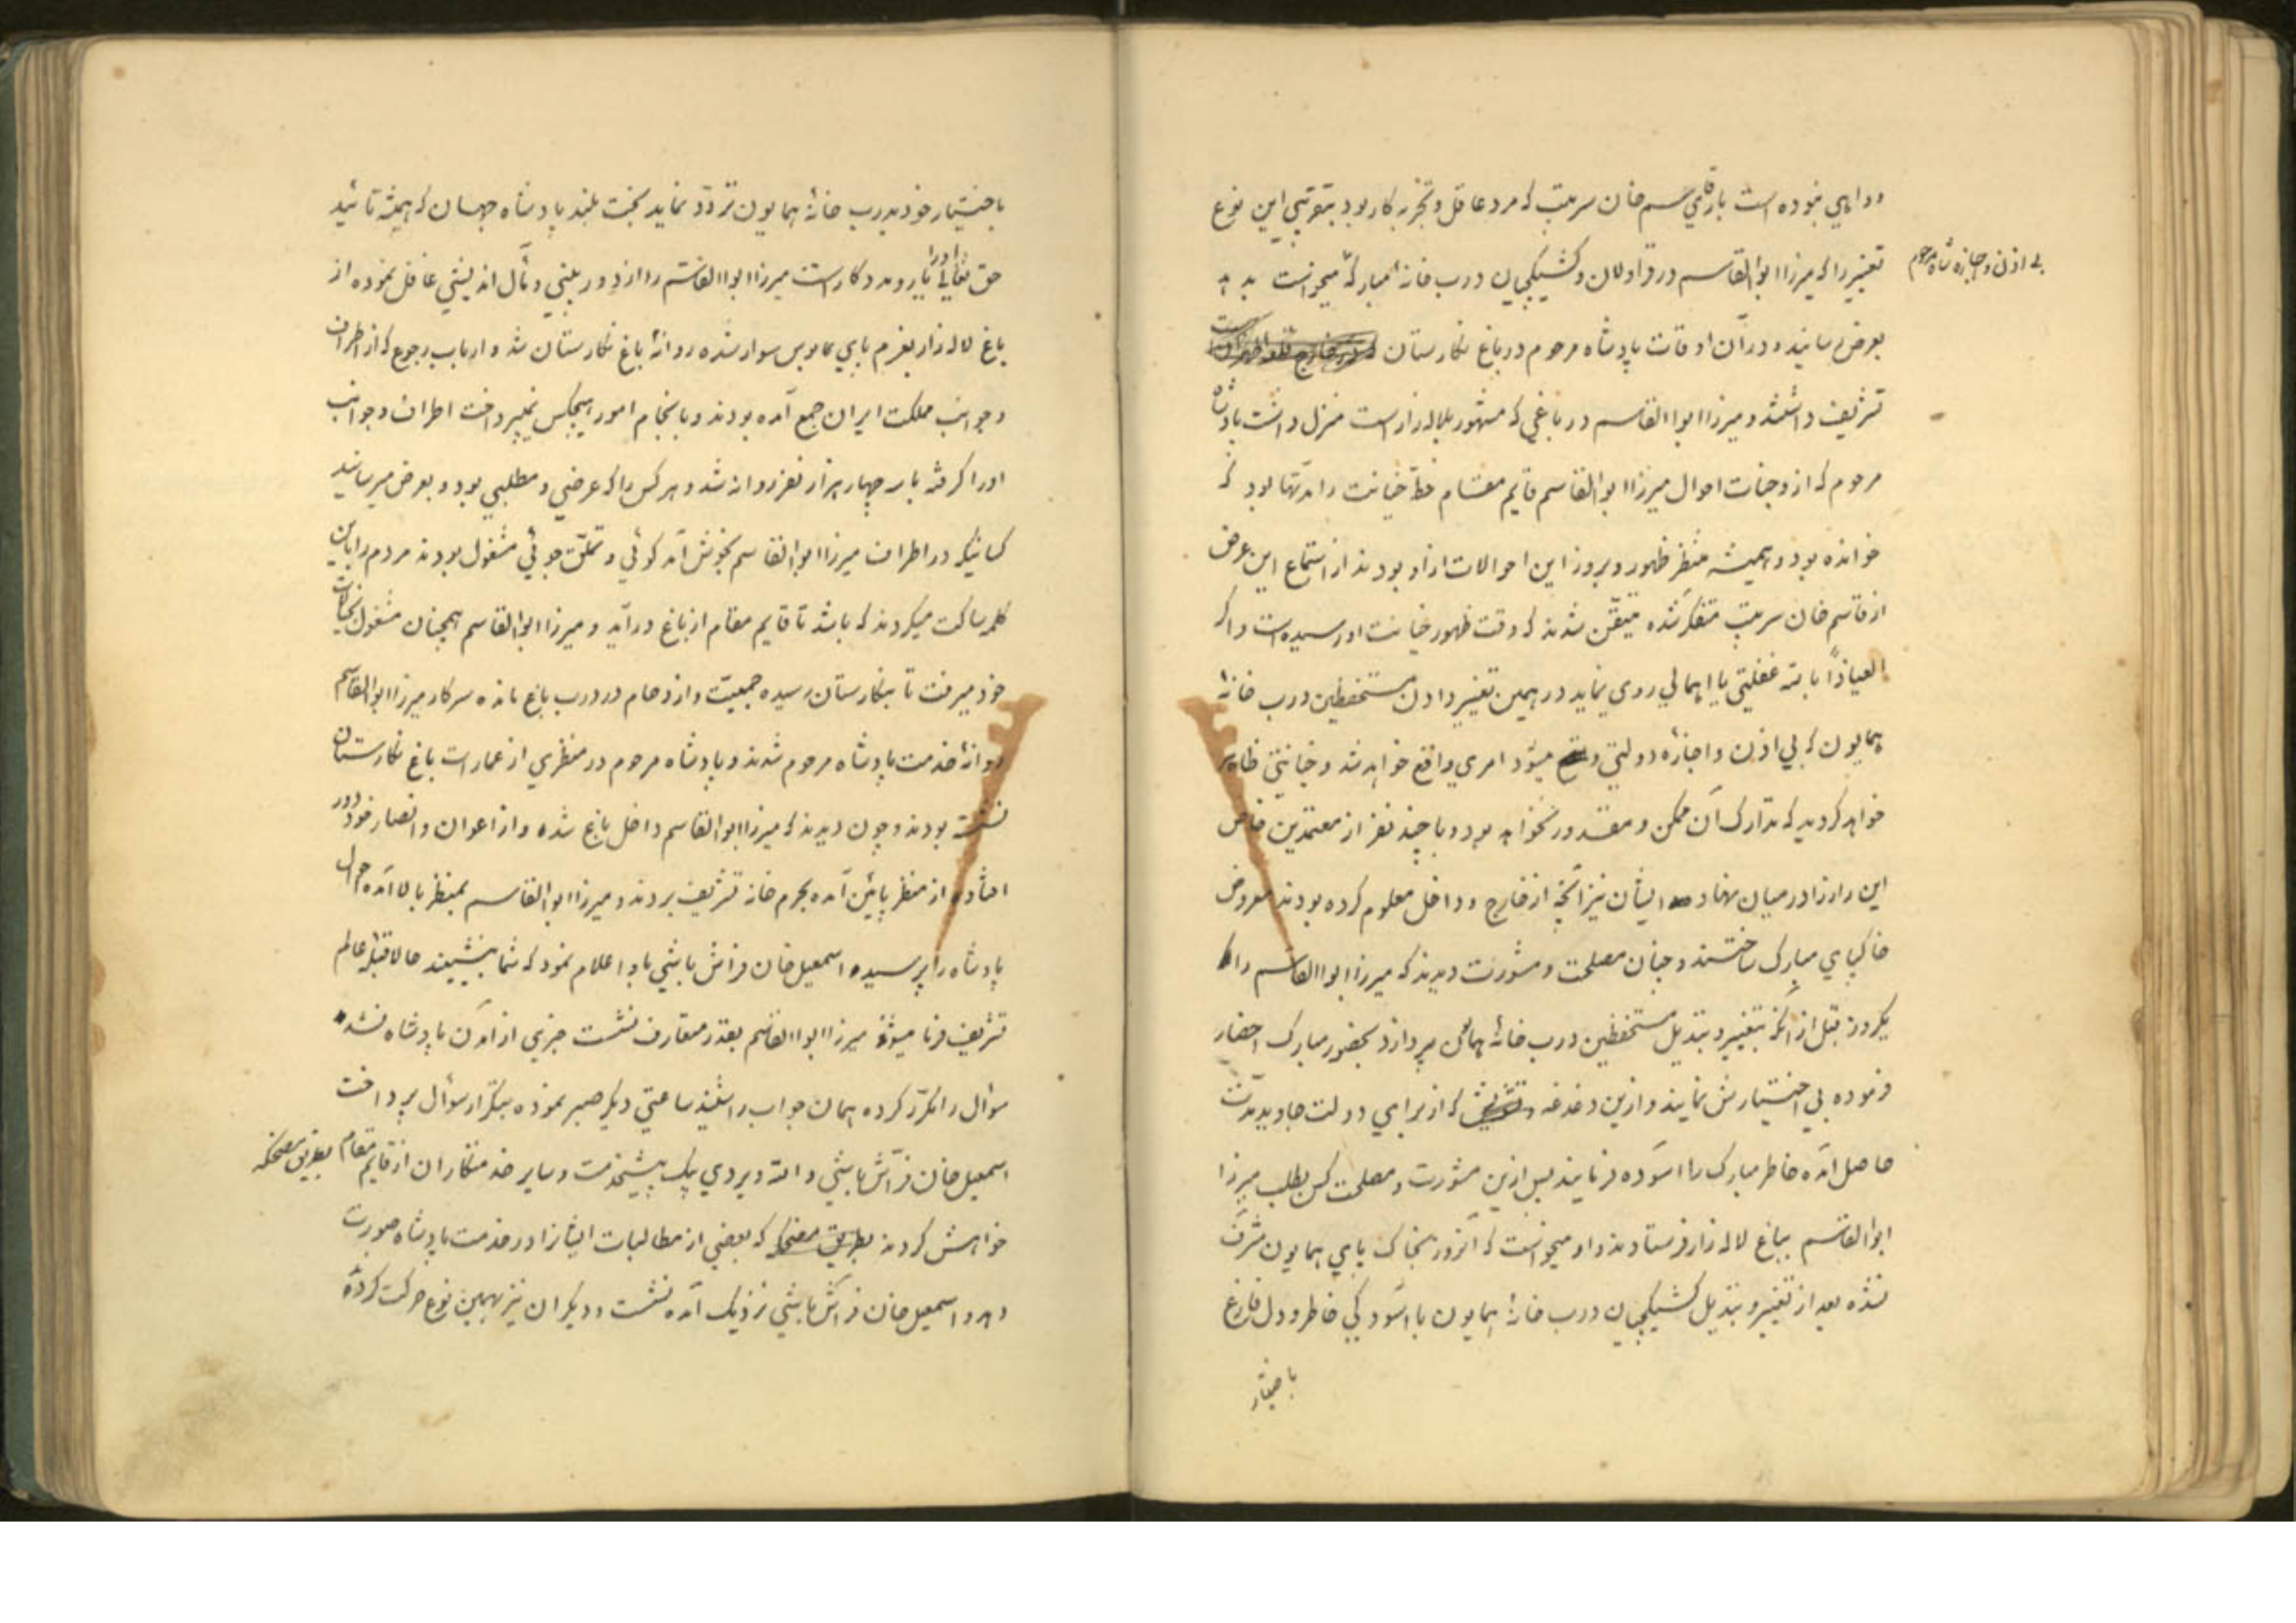 ودایی نبوده است باری قاسم خان سرتیپ که مرد عاقل و تجربه کار بود بتقریبی این نوع
تغییر را که میرزا ابوالقاسم در قراولان و کشیکچیان درب خانه مبارکه میخواست بدهد
بی اذن و اجازه شاه مرحوم
بعرض رسانیده در آن اوقات پادشاه مرحوم در باغ نگارستان
تشریف داشتند و میرزا ابوالقاسم در باغی که مشهور بلاله زار است منزل داشت پادشاه
مرحوم که از وجنات احوال میرزا ابوالقاسم قایم مقام خط خیانت را مدتها بود که
خوانده بود و همیشه منتظر ظهور و بروز این احوالات از او بودند از استماع این عرض
از قاسم خان سرتیپ متفکر شده متیقن شدند که وقت ظهور خیانت او رسیده است و اگر
العیاذاً بالله غفلتی یا اهمالی روی نماید در همین تغییر دادن مستحفظین درب خانهٔ
همایون که بی اذن و اجازه دولتی میشود امری واقع خواهد شد و خیانتی ظاهر
خواهد گردید که تدارک آن ممکن و مقدور نخواهد بود و با چند نفر از معتمدین خاص
این راز را در میان نهاده ایشان نیز آنچه از خارج و داخل معلوم کرده بودند معروض
خاکپای مبارک ساختند و چنان مصلحت و مشورت دیدند که میرزا ابوالقاسم را
یکروز قبل از آنکه بتغییر و تبدیل مستحفظین درب خانهٔ همایون پردازد بحضور مبارک احضار
فرموده بی اختیارش نمایند و ازین دغدغه که از برای دولت جاوید مدت
حاصل آمده خاطر مبارک را آسوده فرمایند پس ازین مشورت و مصلحت کس بطلب میرزا
ابوالقاسم بباغ لاله زار فرستادند و او میخواست که آنروز بخاک پای همایون مشرف
نشده بعد از تغییر و تبدیل کشیکچیان درب خانهٔ همایون با آسودگی خاطر و دل فارغ
باختیار
باختیار خود بدرب خانهٔ همایون تردد نماید بخت بلند پادشاه جهان که همیشه تائید
حق تعالی او را یار و مددکار است میرزا ابوالقاسم را از دوربینی و مآل اندیشی غافل نموده از
باغ لاله زار بعزم پای بوس سوار شده روانهٔ باغ نگارستان شد و ارباب رجوع که از اطراف
و جوانب مملکت ایران جمع آمده بودند و بانجام امور هیچکس نمیپرداخت اطراف و جوانب
او را گرفته با سه چهار هزار نفر روانه شد و هر کس را که عرضی و مطلبی بود و بعرض میرسانید
کسانیکه در اطراف میرزا ابوالقاسم بخوش آمد گوئی و تملق جوئی مشغول بودند مردم را باین
کلمه ساکت میکردند که باشد تا قایم مقام از باغ درآید و میرزا ابوالقاسم همچنان مشغول بخیالات
خود میرفت تا بنگارستان رسیده جمعیت و ازدحام در درب باغ مانده سرکار میرزا ابوالقاسم
روانهٔ خدمت پادشاه مرحوم شدند و پادشاه مرحوم در منظری از عمارات باغ نگارستان
نشسته بودند و چون دیدند که میرزا ابوالقاسم داخل باغ شده و از اعوان و انصار خود دور
افتاده از منظر پائین آمده بحرم خانه تشریف بردند و میرزا ابوالقاسم بمنظر بالا آمده احوال
پادشاه را پرسیده اسمعیل خان فراش باشی باو اعلام نمود که شما بنشینید حالا قبله عالم
تشریف فرما میشوند میرزا ابوالقاسم بقدر متعارف نشست خبری از آمدن پادشاه نشد
سؤال را مکرر کرده همان جواب را شنید ساعتی دیگر صبر نموده بتکرار سؤال پرداخت
اسمعیل خان فراش باشی و الله ویردی بیک پیشخدمت و سایر خدمتکاران از قایم مقام بطریق مضحکه
خواهش کردند بطریق مضحکه که بعضی از مطالبات ایشانرا در خدمت پادشاه صورت
دهد و اسمعیل خان فراش باشی نزدیک آمده نشست و دیگران نیز بهمین نوع حرکت کرده